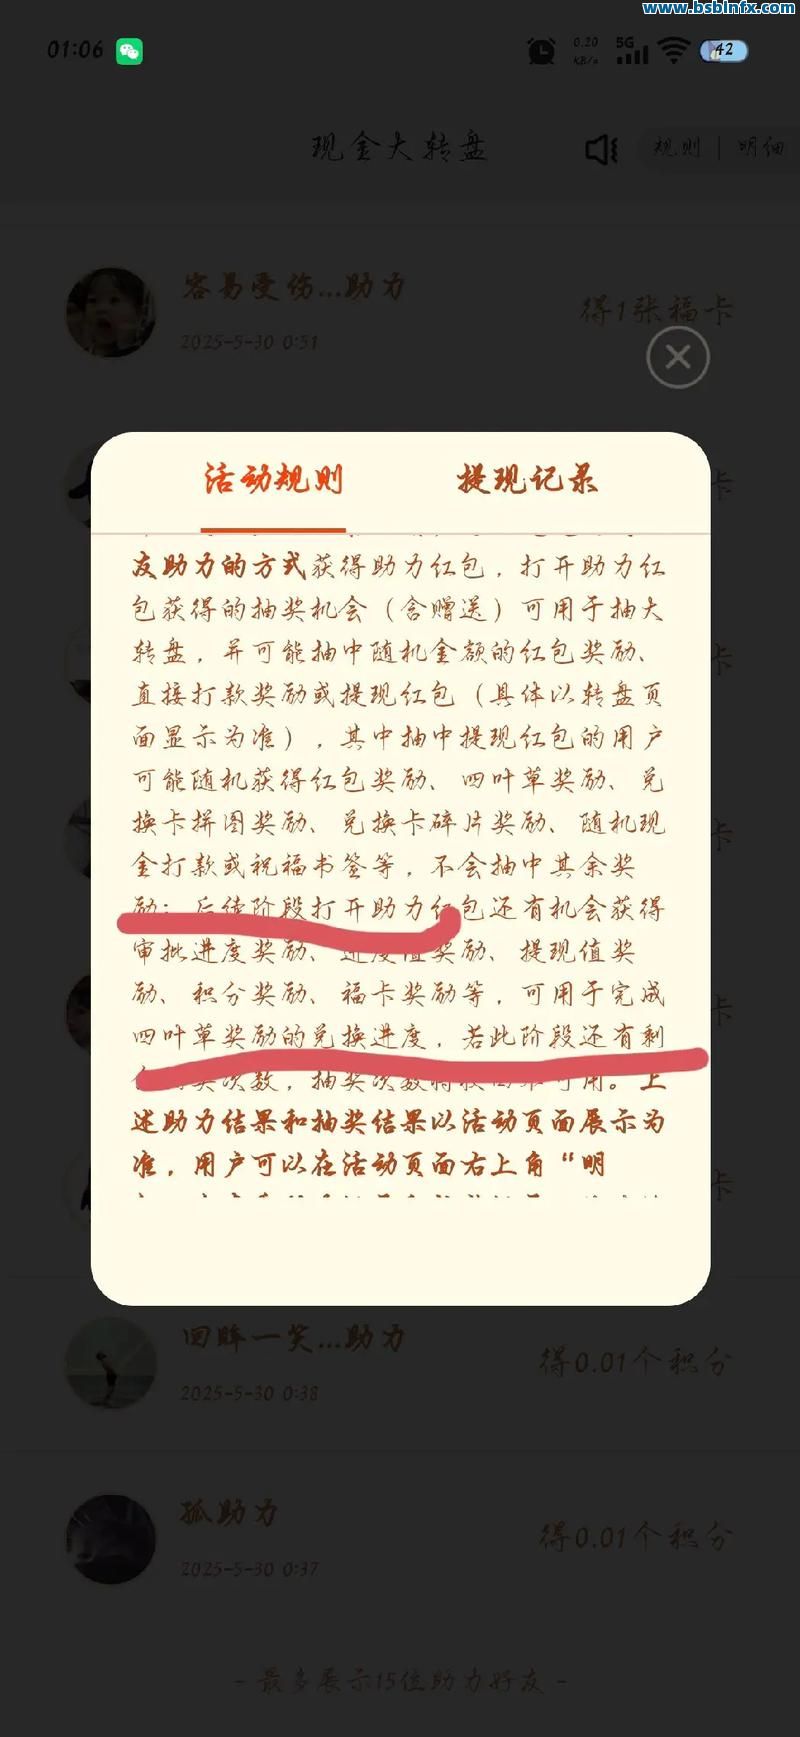 www.bsblnfx.com
01:06
0.20
KB/s
5G
42
现金大转盘
规则 | 明细
容易受伤...助力
得1张福卡
2025-5-30 0:51
活动规则
提现记录
友助力的方式获得助力红包，打开助力红
包获得的抽奖机会（含赠送）可用于抽大
转盘，并可能抽中随机金额的红包奖励、
直接打款奖励或提现红包（具体以转盘页
面显示为准），其中抽中提现红包的用户
可能随机获得红包奖励、四叶草奖励、兑
换卡拼图奖励、兑换卡碎片奖励、随机现
金打款或祝福书签等，不会抽中其余奖
励；后续阶段打开助力红包还有机会获得
审批进度奖励、进度值奖励、提现值奖
励、积分奖励、福卡奖励等，可用于完成
四叶草奖励的兑换进度，若此阶段还有剩
奖次数，抽奖次数将 可用。上
述助力结果和抽奖结果以活动页面展示为
准，用户可以在活动页面右上角“明
卡
卡
卡
卡
卡
回眸一笑...助力
得0.01个积分
2025-5-30 0:38
孤助力
得0.01个积分
2025-5-30 0:37
- 最多展示15位助力好友 -